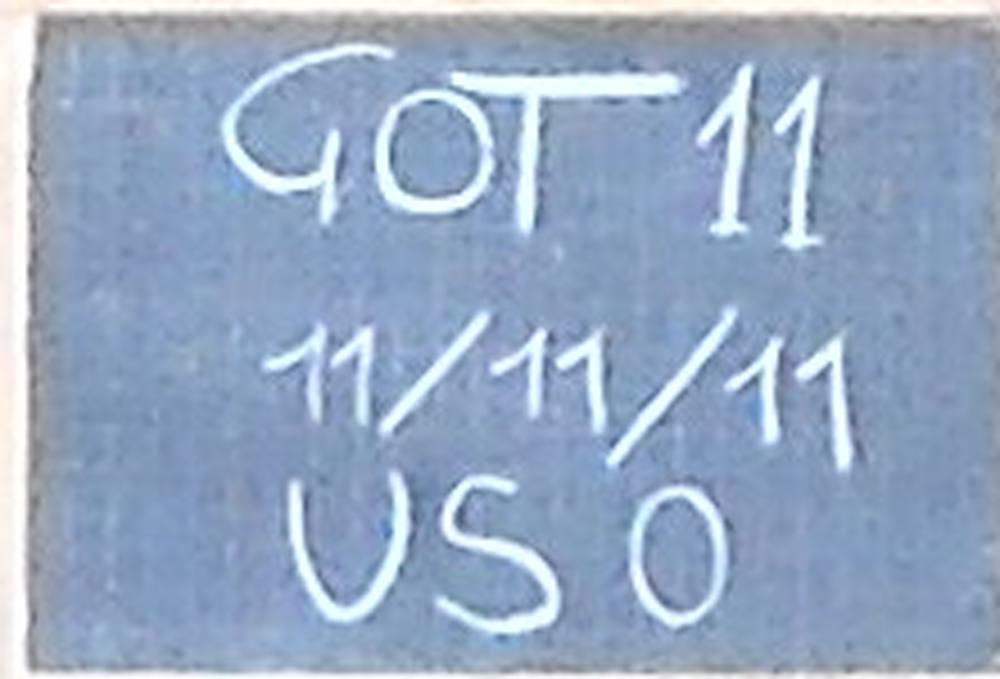 GOT 11
11/11/11
US 0